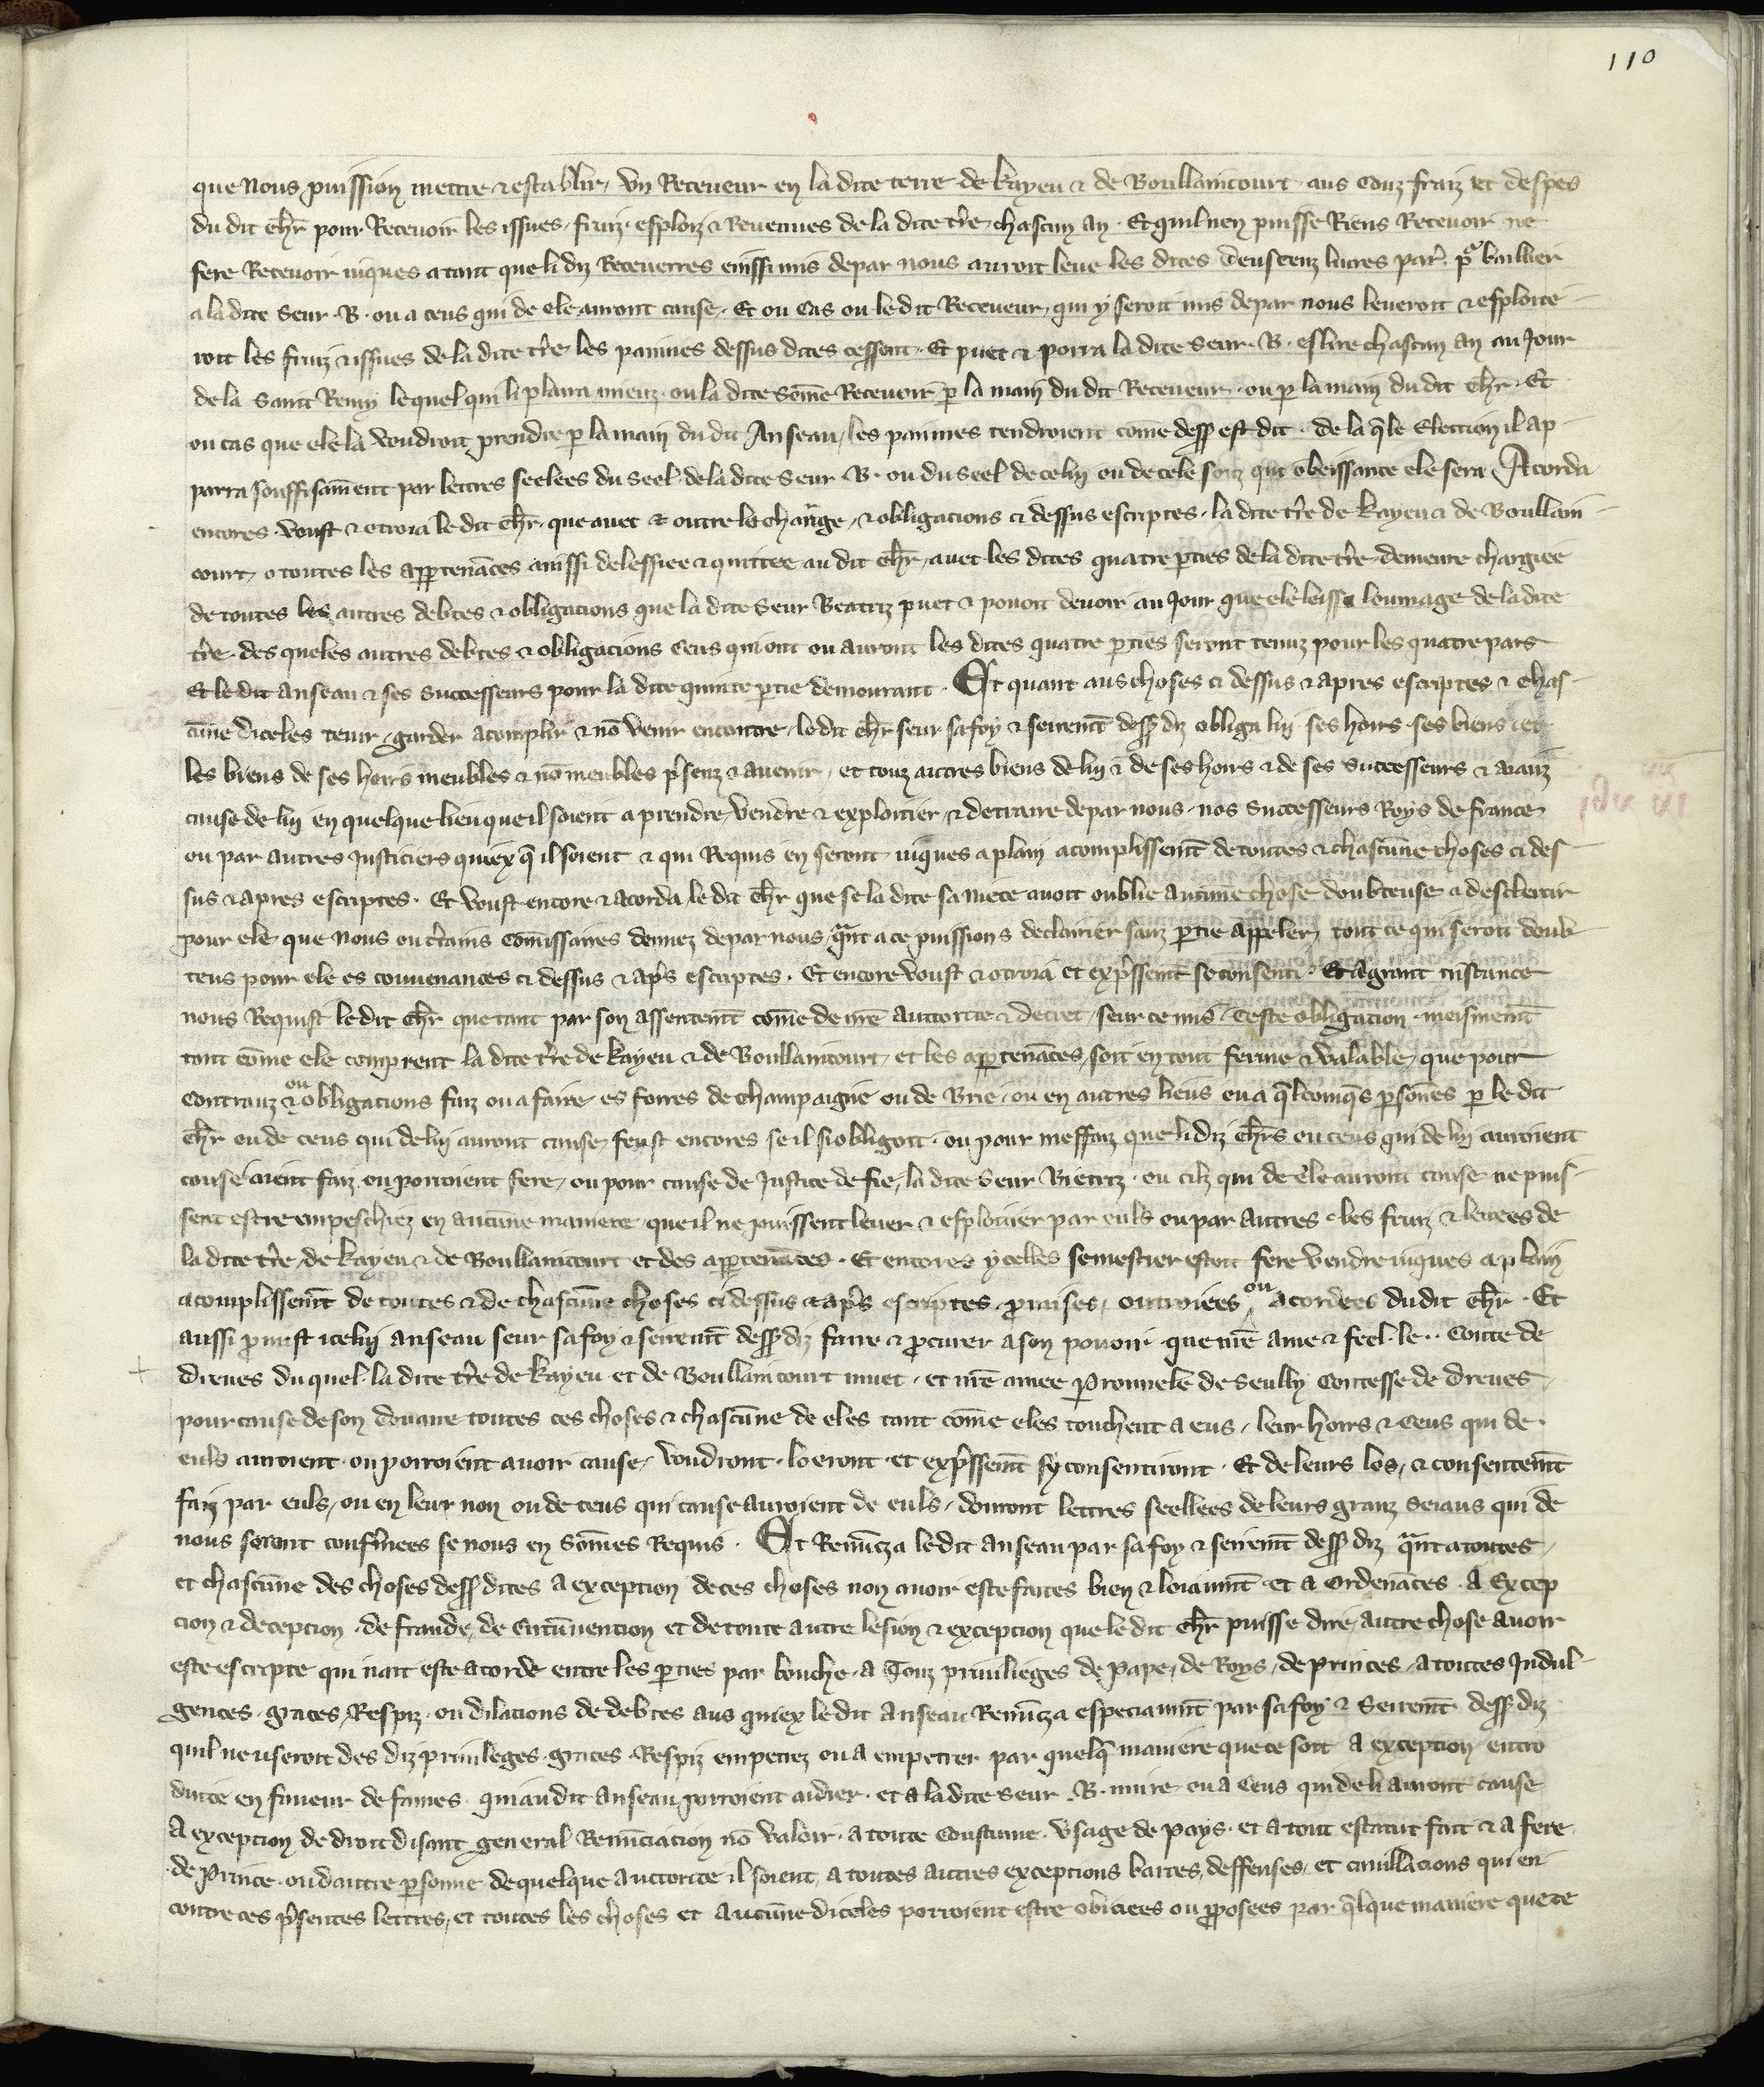 110
que nous puission mettre & establir, un Receveur en la dite terre de Kayeu & de Boullaincourt aus couz fraiz et despes
du dit chr pour Recevoir les issues, fruiz esploiz & Revenues de la dite tre chascun an. Et quil nen puisse Riens Recevoir ne
fere Recevoir iuques atant que li diz Receverres einssi mis de par nous auroit leve les dites deus cenz livres par. por baillier
a la dite seur .B. ou a ceus qui de ele auront cause. Et ou cas ou le dit Receveur, qui y seroit mis de par nous leveroit & esploite
roit les fruiz & issues de la dite tre les painnes dessus dites cessent. Et puet & porra la dite seur .B. eslire chascun an au Jour
de la saint Remy lequel qui li plaira mieuz. ou la dite somme Recevoir p la main du dit Receveur. ou p la main du dit chr. Et
ou cas que ele la voudroit prendre p la main du dit Anseau, les painnes tendroient come dess est dit. de la qle Election il ap
parra souffisament par lettres seelees du seel de la dite seur .B. ou du seel de celui ou de cele souz qui obeissance ele sera. Acorda
encores. voust & otroia le dit chr. que avec & outre leschange, & obligacions ci dessus escriptes. la dite tre de Kayeu & de Boullain
court, o toutes les appartenances ainssi delessiee & quittee au dit chr, avec les dites quatre pties de la dite tre demeure chargiee
de toutes les autres debtes & obligacions que la dite seur Beatriz puet & povoit devoir au Jour que ele lessa loumage de la dite
tre. des queles autres debtes & obligacions ceus qui ont ou auront les dites quatre pties seront tenuz pour les quatre pars
Et le dit anseau & ses successeurs pour la dite quinte ptie demourant. Et quant aus choses ci dessus & apres escriptes & chas
cune diceles tenir, garder acomplir & no venir encontre, le dit chr seur sa foy & seirent dess diz obliga lui ses hoirs ses biens et
les biens de ses hoirs meubles & no meubles psenz & avenir, et touz autres biens de lui & de ses hoirs & de ses successeurs & aianz
cause de lui en quelque lieu que il soient a prendre vendre & exploitier, & detraire de par nous. nos successeurs Roys de france
ou par autres Justiciers quiex q il soient & qui Requis en seront iuques a plain acomplissemt de toutes & chascune choses ci des
sus & apres escriptes. Et voust encore & acorda le dit chr que se la dite sa niece avoit oublie aucune chose doubteuse a desclerir
pour ele que nous ou ctains comissaires donnez de par nous qant a ce puissions declairier sanz ptie appeler tout ce qui seroit doub
teus pour ele es convenances ci dessus & aps escriptes. Et encore voust & otroia et expssemt se consenti. Et a grant instance
nous Requist le dit chr que tant par son assentemt come de nre auctorite & decret, seur ce mis ceste obligation meismemt
tant come ele comprent la dite tre de Kayeu & de Boullaincourt, et les aptenances, soit en tout ferme & valable, que pour
contrauz & ou obligations faiz ou a faire, es foires de champaigne ou de Brie, ou en autres lieus ou a qlcomqs psones p le dit
chr ou de ceus qui de lui auront cause, feust encores se il si obligoit. ou pour meffaiz que li diz chrs ou ceus qui de lui auroient
cause aient faiz, ou porroient fere, ou pour cause de Justice de fie, la dite seur Bietriz. ou cilz qui de ele auront cause ne puis
sent estre empeschiez en aucune maniere que il ne puissent lever & esploitier par euls ou par autres les fruiz & levees de
la dite tre, de Kayeu & de Boullaincourt et des aptenances. Et encores ycelles se mestier estoit fere vendre iuques a plain
acomplissemt de toutes & de chascune choses ci dessus & aps escriptes, pmises, outroiees ou acordees du dit chr. Et
aussi pmist icelui anseau seur sa foy & seiremt dess diz faire & pcurer a son povoir. que nre ame & feel. le .. conte de
dreues du quel la dite tre de Kayeu et de Boullaincourt muet. et nre amee Perronnele de Seully Contesse de dreues
pour cause de son douaire toutes ces choses & chascune de eles tant come eles touchent a eus, leur hoirs & ceus qui de
euls auroient ou porroient avoir cause, voudront. loeront et expssemt sy consentiront. Et de leurs los, & consentemt
faiz par euls, ou en leur non ou de ceus qui cause auroient de euls, donront lettres seellees de leurs granz seiaus qui de
nous seront confmees se nous en somes Requis. Et Renunca le dit anseau par sa foy & seiremt dess diz qant a toutes,
et chascune des choses dess dites a exception de ces choses non avoir este faites bien & loiaumt et a Ordenances. A Excep
cion & deception. de fraude, de circunvention et de toute autre lesion & exception que le dit chr puisse dire, autre chose avoir
este escripte qui nait este acorde entre les pties par bouche. a Touz privileges de Pape, de Roys, de princes, a toutes Indul
gences. graces, Respiz. ou dilacions de debtes aus quiex le dit anseau Renunca especiaumt par sa foy & seiremt dess diz
quil ne useroit des diz privileges. graces. Respiz empetrez ou a empetrer par quelq maniere que ce soit a exception entro
duite en faveur de fames. qui au dit anseau porroient aidier. et a la dite seur .B. nuire. ou a ceus qui de li auront cause
A exception de droit disant general Renunciacion no valoir. a toute coustume. usage de pays. et a tout estatut fait & a fere
de Prince. ou dautre psonne de quelque auctorite il soient, a toutes autres exceptions barres, deffenses, et cavillacions qui en
contre ces psentes lettres, et toutes les choses et aucune diceles porroient estre obiciees ou pposees par qlque maniere que ce